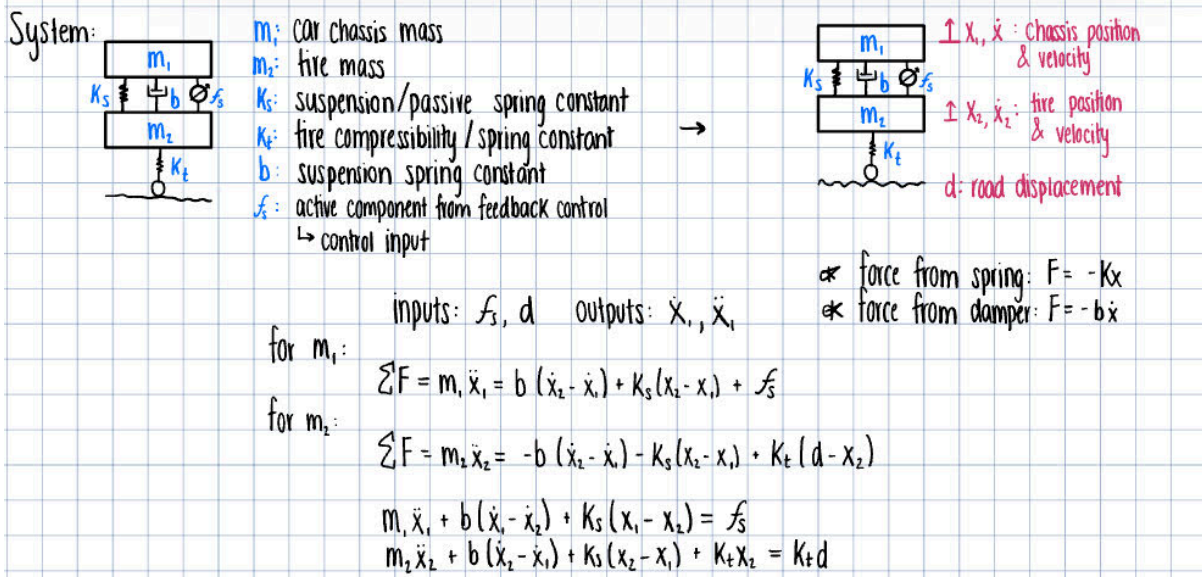 System:
m₁
Ks b fs
m₂
Kt
m₁: car chassis mass
m₂: tire mass
Ks: suspension/passive spring constant
Kt: tire compressibility / spring constant
b: suspension spring constant
fs: active component from feedback control
↳ control input
→
m₁
Ks b fs
m₂
Kt
↥ x₁, ẋ : chassis position
& velocity
↥ x₂, ẋ₂ : tire position
& velocity
d: road displacement
* force from spring: F = -Kx
* force from damper: F = -bẋ
inputs: fs, d outputs: ẋ₁, ẍ₁
for m₁:
ΣF = m₁ẍ₁ = b(ẋ₂ - ẋ₁) + Ks(x₂ - x₁) + fs
for m₂:
ΣF = m₂ẍ₂ = -b(ẋ₂ - ẋ₁) - Ks(x₂ - x₁) + Kt(d - x₂)
m₁ẍ₁ + b(ẋ₁ - ẋ₂) + Ks(x₁ - x₂) = fs
m₂ẍ₂ + b(ẋ₂ - ẋ₁) + Ks(x₂ - x₁) + Ktx₂ = Ktd